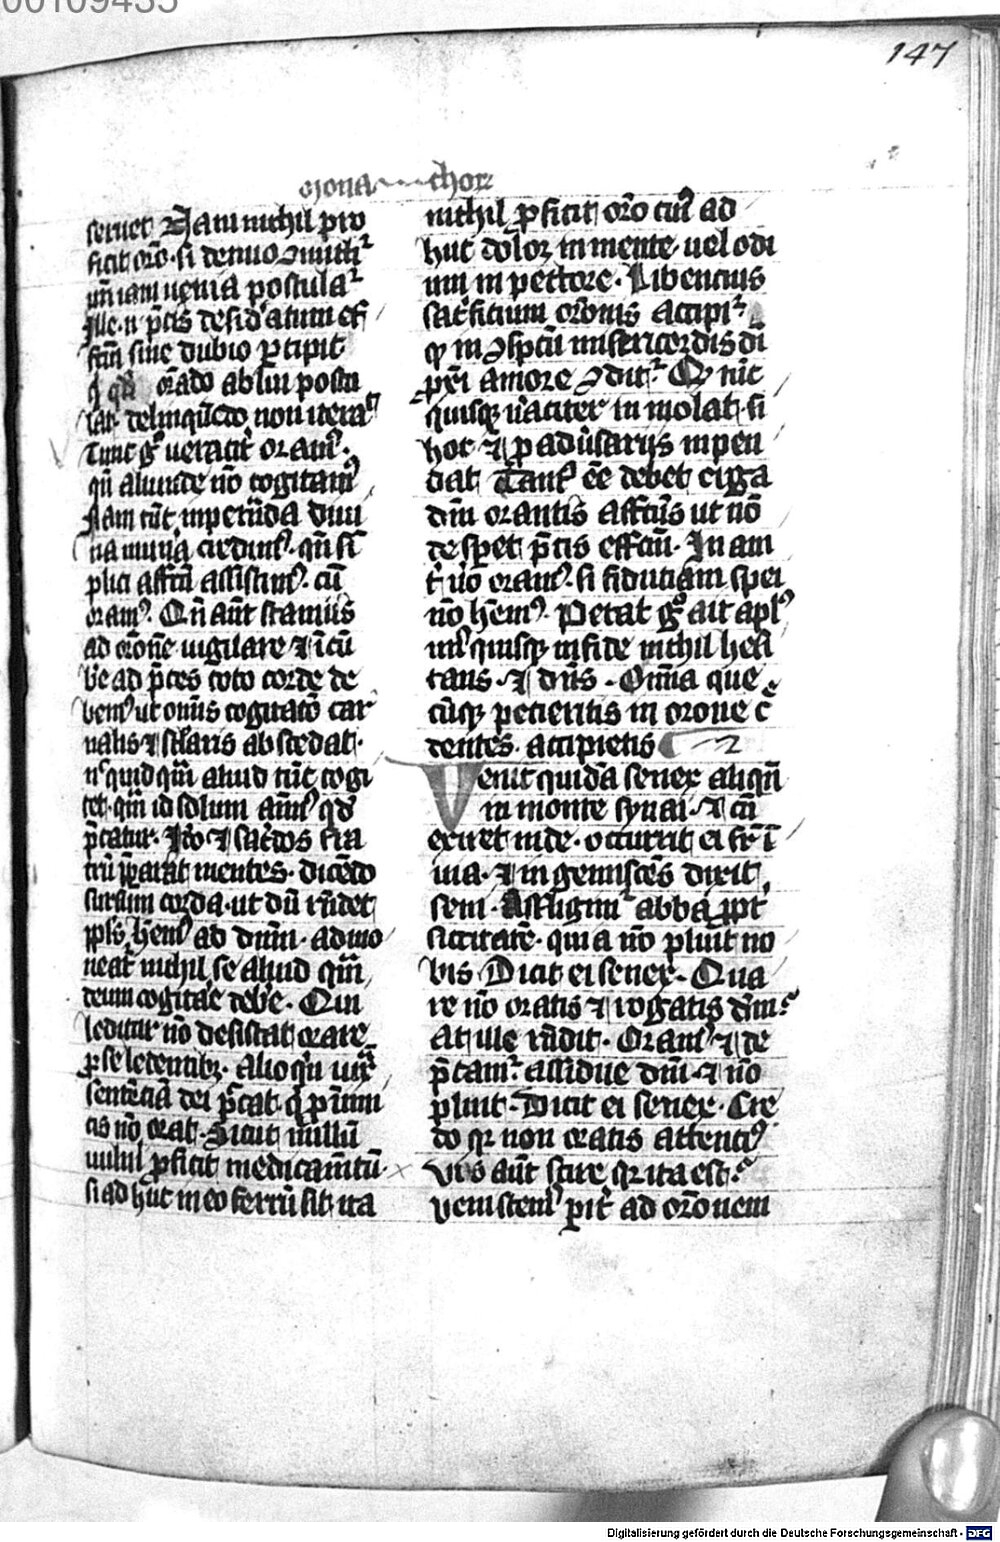 00109435
147
mona chorꝝ
seruet Nam nichil pro
ficit orō· si denuo ꝯmittit᷑
vn̄ iam uenia postulat᷑
Ille· n̄ p̄cis desid̓atum ef
fc̄m sine dubio ꝑcipit
orādo ablui postu
lat· delinquēdo non iterat᷑
Tunc gͦ ueracit̓ oramꝰ·
qn̄ aliunde nō cogitamꝰ
Nam tūc inpetrāda diui
na mun̓a credimꝰ· qn̄ sī
plici affc̄u assistimꝰ· cū
oramꝰ· Qn̄ aūt stamus
ad orōnē uigilare ⁊ īcū
b̓e ad p̄ces toto corde de
bemꝰ ut om̄is cogitatō car
nalis ⁊ sc̄laris abscedat·
n̓ quidqm̄ aliud tūc cogi
tet· qm̄ id solum aīmꝰ qd̓
p̄catur· Iō ⁊ sac̓dos fra
trū p̄parat mentes· dicēdo
sursum corda· ut dū rn̄det
ppl̓s hēmꝰ ad dnm̄· admo
neat̓ nichil se aliud qm̄
deum cogitare deb̓e· Qui
leditur nō desistat orare
ꝓ se ledentibꝫ· Alioqn̄ iux̄
sentēciā dei p̄cat q̓ ꝓ inimi
cis nō orat· Sicut nullū
uulnꝰ ꝓficit medicam̄tū
si ad huc in eo ferrū sit· ita
nichil ꝓficit orō cuiꝰ ad
huc dolor in mente· uel odi
um in pectore· Libencius
sac̓ficium orōnis accipit᷑
qͦ in ꝯspc̄u misericordis di
amore ꝯdit᷑ Qͦ nūc
quisqꝫ ūaciter inmolat· si
hoc ⁊ ꝓ adūsarijs inpen
dat Tantꝰ eē debet erga
dm̄ orantis affectꝰ ut nō
desperet p̄cis effc̄m· In uan
ū uō oramꝰ· si fiduciam spei
nō hēmꝰ· Petat gͦ ait apl̓s
unꝰquisqꝫ in fide nichil hesi
tans· ⁊ dn̄s· Om̄ia que
cūqꝫ pecieritis in orone c̄
dentes· accipietis
Venit quidā senex aliqn̄
in monte synai· ⁊ cū
exiret inde· occurrit ei fr̄ ī
uia· ⁊ ingemiscēs dixit
seni· Affligim᷑ abba ꝓpt̓
siccitatē· quia nō pluit no
bis Dicit ei senex· Qua
re nō oratis ⁊ rogatis dm̄·
At ille rn̄dit· Oramꝰ ⁊ de
p̄camꝰ assidue dm̄· ⁊ nō
pluit· Dicit ei senex· Cre
do qꝛ non oratis attenciꝰ
Vis aūt scire qꝛ ita est·
Veni stemꝰ parit̓ ad orōnem
Digitalisierung gefördert durch die Deutsche Forschungsgemeinschaft - DFG